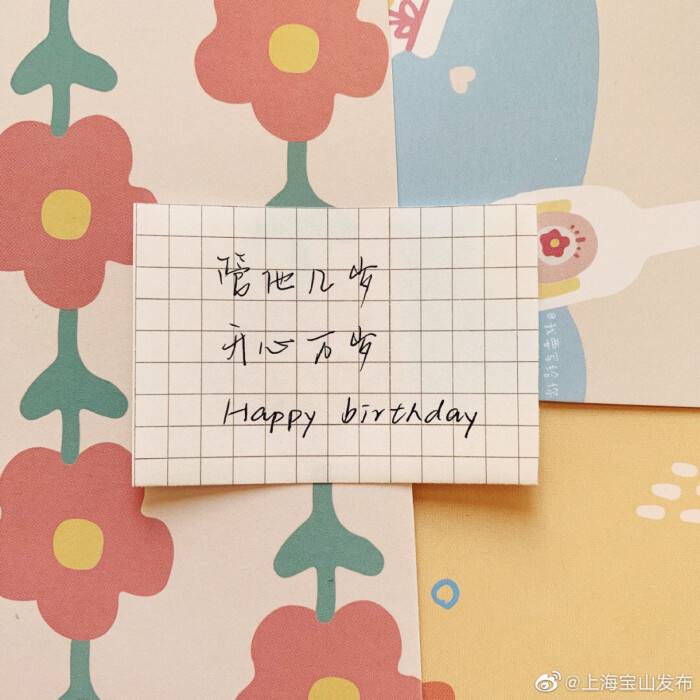 管他几岁
开心万岁
Happy birthday
@我要写给你
@上海宝山发布